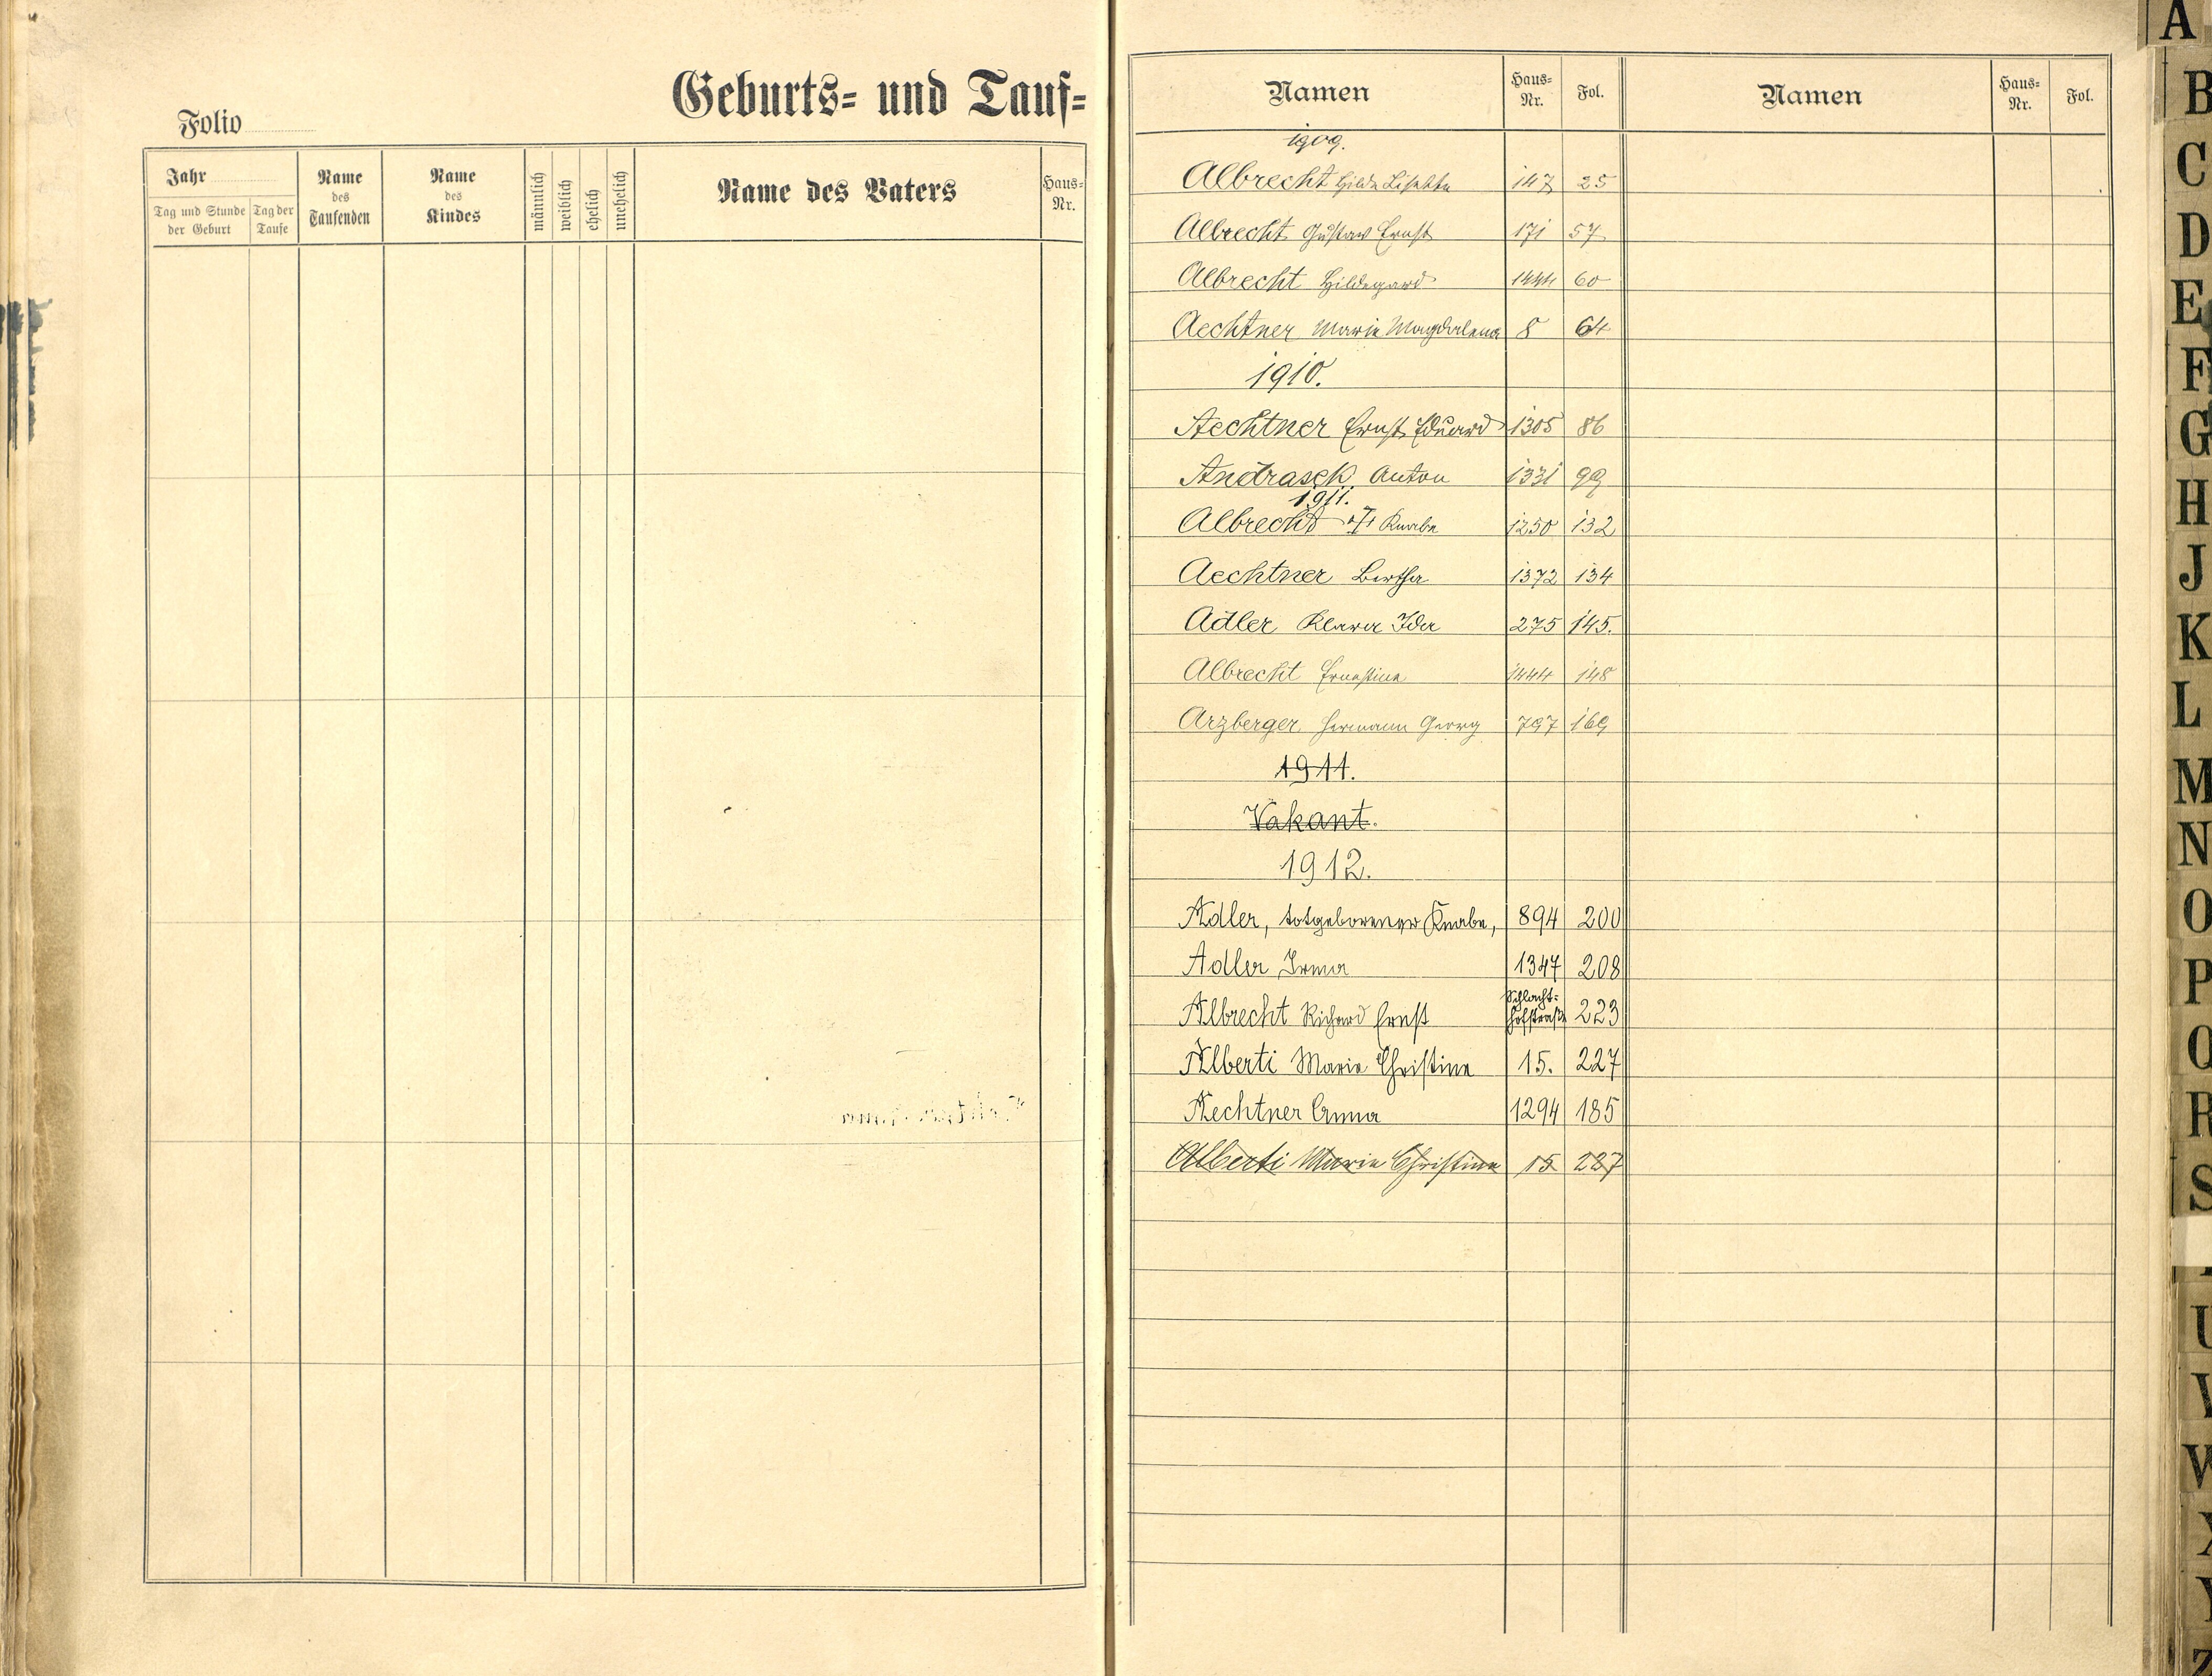 Geburts= und Tauf=
Folio
Jahr
Tag und Stunde der Geburt
Tag der Taufe
Name des Taufenden
Name des Kindes
männlich
weiblich
ehelich
unehelich
Name des Vaters
Haus=Nr.
Namen Haus=Nr. Fol. Namen Haus=Nr. Fol.
1909.
Albrecht Hilda Lisette 147 25
Albrecht Gustav Ernst 171 57
Albrecht Hildegard 1444 60
Aechtner Marie Magdalena 8 64
1910.
Aechtner Ernst Eduard 1305 86
Andrasek Anton 1331 99
1911.
Albrecht Knabe 1250 132
Aechtner Bertha 1372 134
Adler Klara Ida 275 145.
Albrecht Ernestine 1444 148
Arzberger Hermann Georg 797 169
1911.
Vakant.
1912.
Adler, totgeborener Knabe, 894 200
Adler Irma 1347 208
Albrecht Richard Ernst Schlacht=hofstraße 223
Alberti Marie Christine 15. 227
Aechtner Anna 1294 185
Alberti Marie Christine 15 227
A
B
C
D
E
F
G
H
J
K
L
M
N
O
P
Q
R
S
U
V
W
X
Y
Z